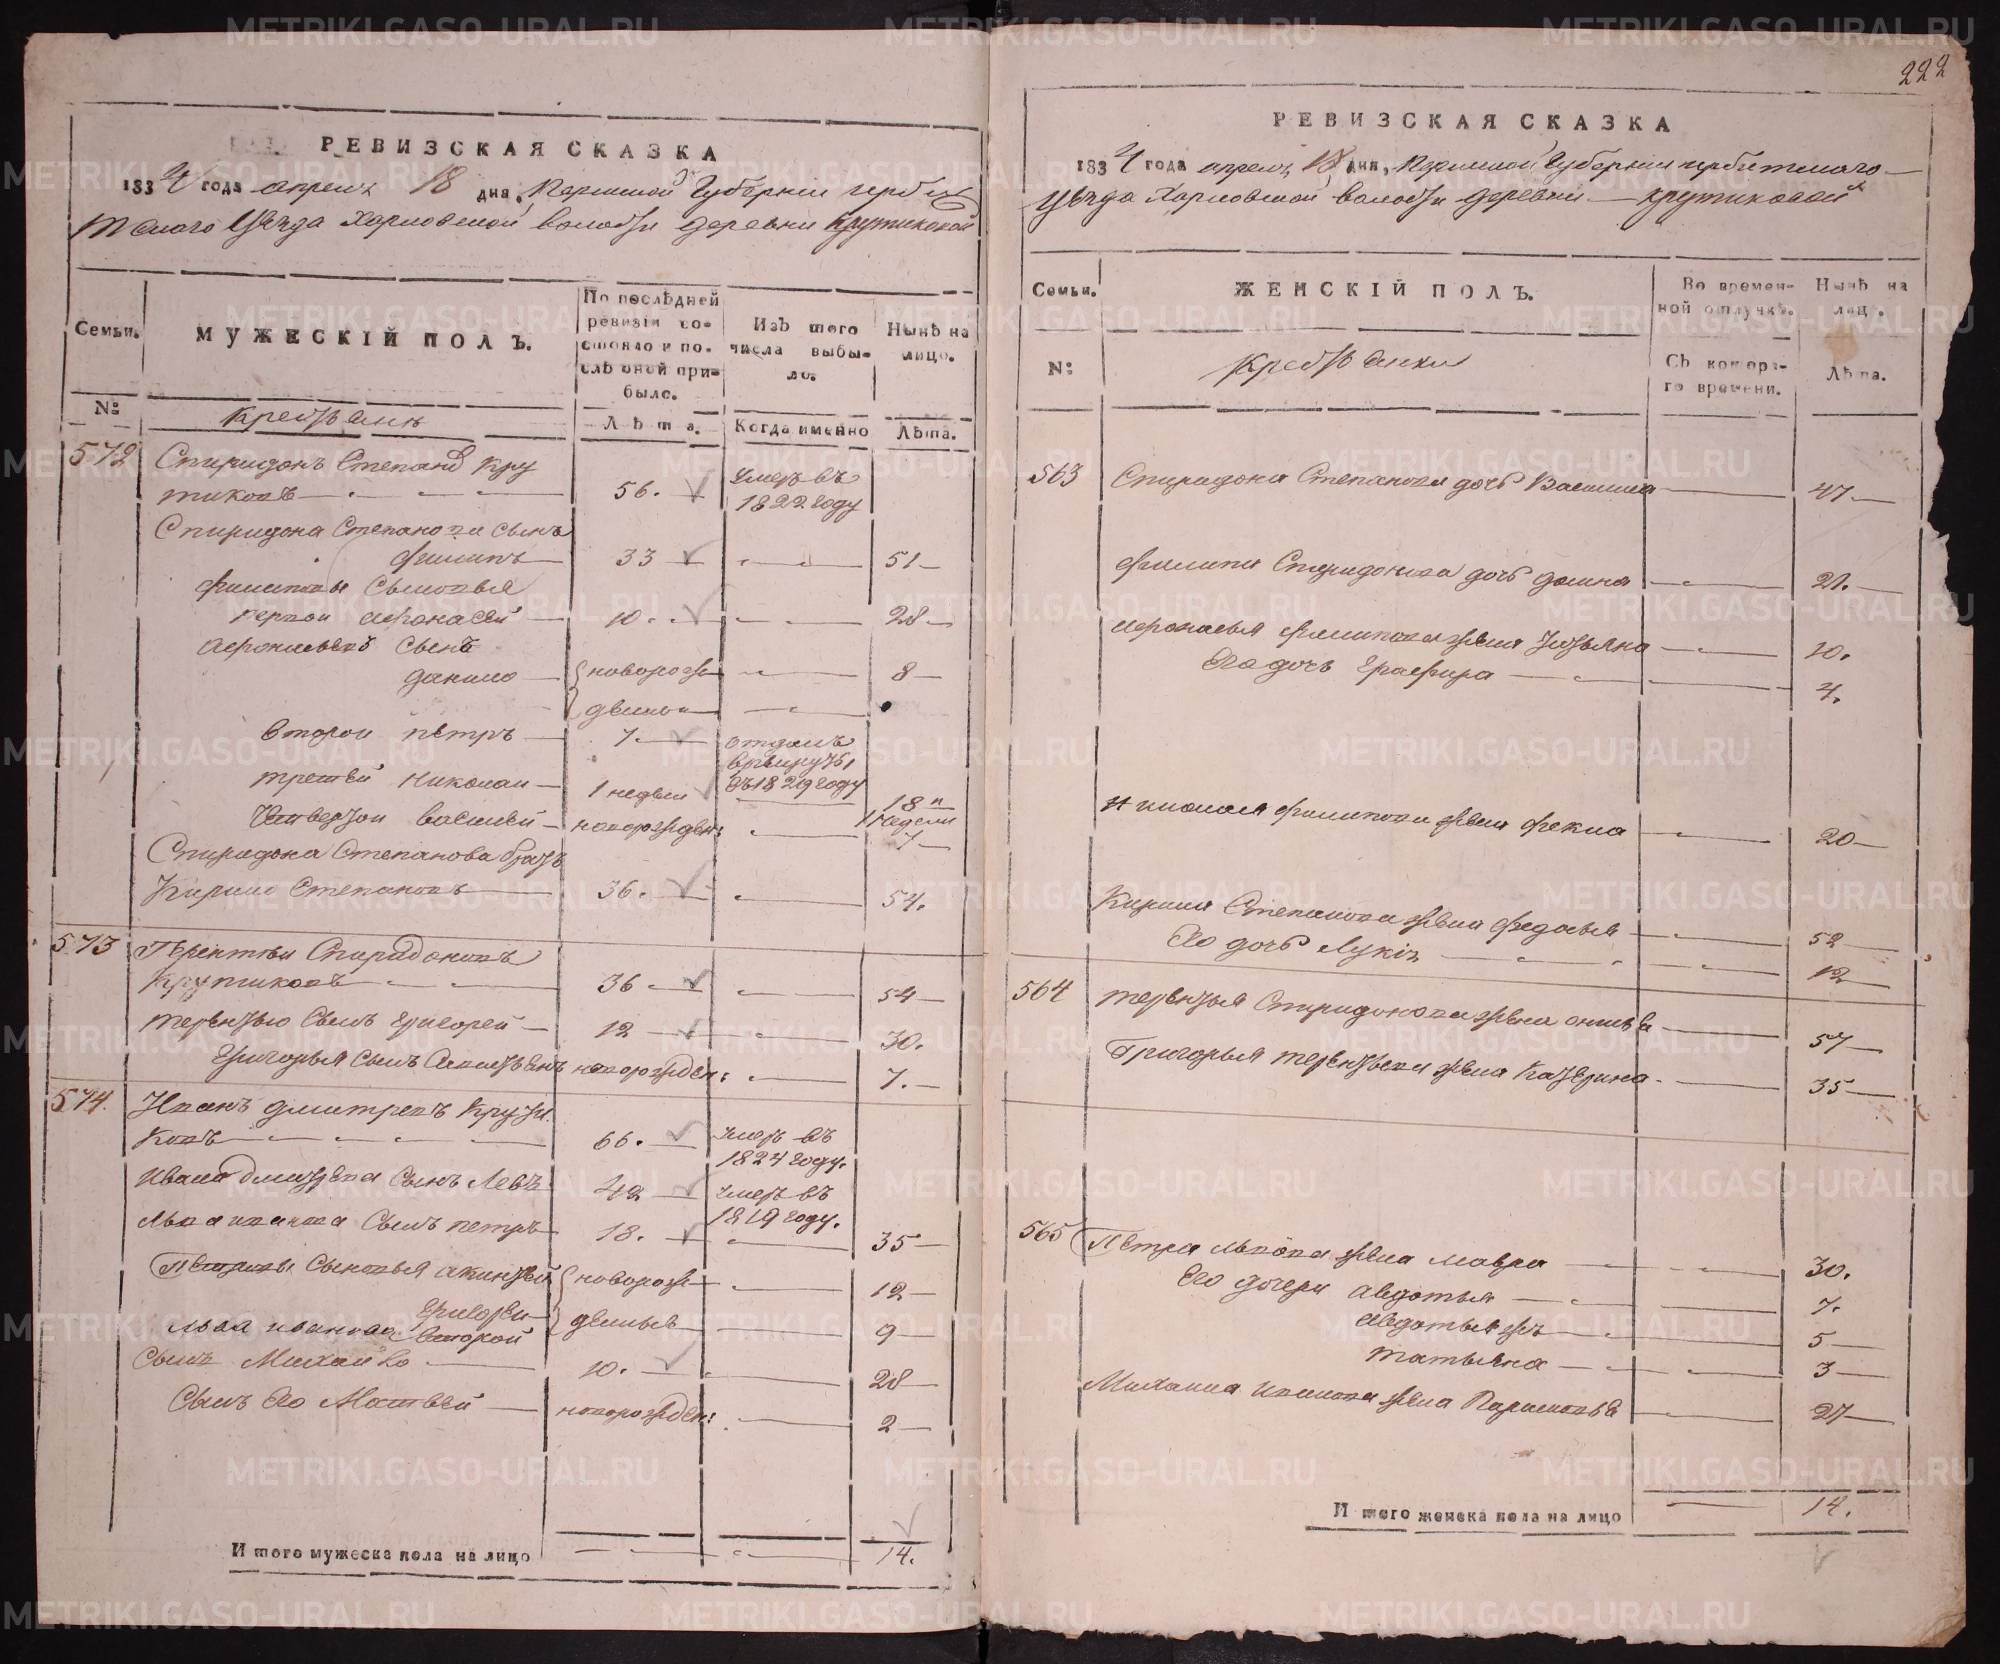 222
РЕВИЗСКАЯ СКАЗКА
1834 года апреля 18 дня, Пермской Губернии ирбит
скаго Уѣзда Харловской волости деревни Крутиковой
Семьи.
МУЖЕСКІЙ ПОЛЪ.
По послѣдней ревизіи состояло и послѣ оной прибыло.
Изъ того числа выбыло.
Нынѣ на лицо.
№
Крестьянъ
Лѣта.
Когда именно
Лѣта.
572
Спиридонъ Степановъ Кру
тиковъ 56. Умеръ въ 1822 году
Спиридона Степанова сынъ
Филипъ 33 51
Филиповы Сыновья
первой Афонасей 10. 28
Афонасьевъ Сынъ
Данило новорожденой 8
Второй петръ 7 отданъ в рекруты въ 1829 году
третей Николай 1 недели 18 и 1 недели
Четвертой Василей новорожден: 7
Спиридона Степанова братъ
Кирило Степановъ 36. 54.
573
Терентей Спиридоновъ
Крутиковъ 36 54
терентью Сынъ Григорей 12 30.
Григорья Сынъ новорожден: 7.
574.
Иванъ Дмитревъ Крути
ковъ 66. Умеръ въ 1824 году.
Ивана Дмитрева Сынъ Левъ 42 Умеръ въ 1819 году.
Льва иванова Сынъ петръ 18. 35
Петровы Сыновья новорожденные 12
Григорей 9
Льва иванова второй
Сынъ Михайло 10. 28
Сынъ Его Матвей новорожден: 2
И того мужеска пола на лицо 14.
РЕВИЗСКАЯ СКАЗКА
1834 года апреля 18 дня, Пермской Губернии ирбитскаго
Уѣзда Харловской волости деревни Крутиковой
Семьи.
ЖЕНСКІЙ ПОЛЪ.
Во временной отлучкѣ.
Нынѣ на лицо.
№
Крестьянки
Съ котораго времени.
Лѣта.
563
Спиридона Степанова дочь Василиса 47
Филипа Спиридонова дочь Домна 21.
Афонасья Филипова жена Татьяна 20.
Его дочьГрафира 4.
Николая Филипова жена Фекла 20
Кирила Степанова жена Федосья 52
Его дочь Лукія 12
564
терентья Спиридонова жена 57
Григорья терентьева жена Катерина 35
565
Петра Львова жена Мавра 30.
Его дочери Авдотья 7.
Авдотья жъ 5
Татьяна 3
Михаила иванова жена Парасковья 27
И того женска пола на лицо 14.
METRIKI.GASO-URAL.RU